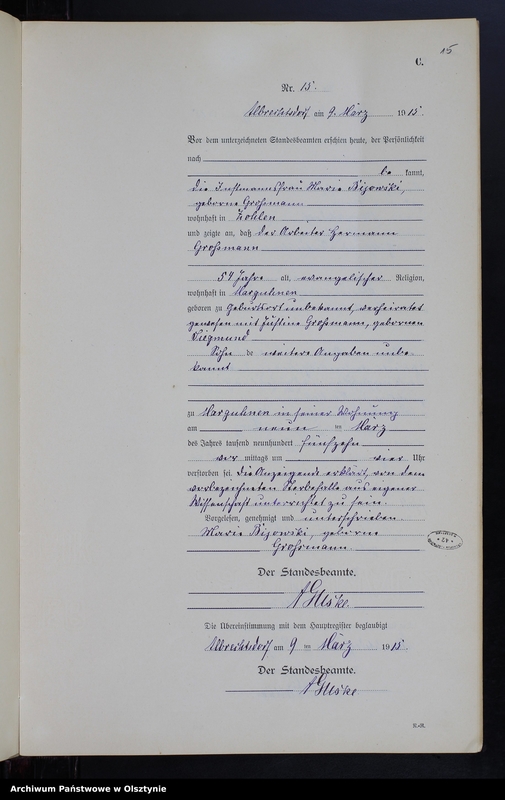 15
C.
Nr. 15.
Albrechtsdorf am 9. März 1915.
Vor dem unterzeichneten Standesbeamten erschien heute, der Persönlichkeit
nach
be kannt,
die Instmannsfrau Marie Bijowski,
geborne Großmann
wohnhaft in Zohlen
und zeigte an, daß der Arbeiter Hermann
Großmann
54 Jahre alt, evangelischer Religion,
wohnhaft in Marguhnen
geboren zu Geburtsort unbekannt, verheiratet
gewesen mit Justine Großmann, gebornen
Siegmund
Sohn de weitere Angaben unbe-
kannt
zu Marguhnen in seiner Wohnung
am neun ten März
des Jahres tausend neunhundert fünfzehn
vor mittags um vier Uhr
verstorben sei. Die Anzeigende erklärt, von dem
vorbezeichneten Sterbefalle aus eigener
Wissenschaft unterrichtet zu sein.
Vorgelesen, genehmigt und unterschrieben.
Marie Bijowski, geborne
Großmann.
Der Standesbeamte.
Guske.
Die Übereinstimmung mit dem Hauptregister beglaubigt
Albrechtsdorf am 9 ten März 1915.
Der Standesbeamte.
Guske
Archiwum Państwowe w Olsztynie